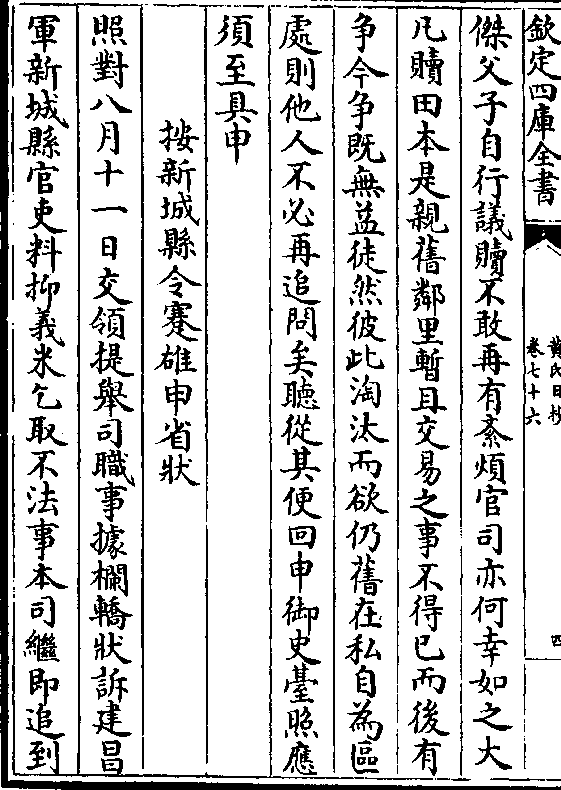 欽定四庫全書
黄氏日抄
卷七十六
四
傑父子自行議贖不敢再有紊煩官司亦何幸如之大
凡贖田本是親舊鄰里暫且交易之事不得已而後有
争今争既無益徒然彼此淘汰而欲仍舊在私自為區
處則他人不必再追問矣聽從其便回申御史臺照應
須至具申
按新城縣令蹇雄申省狀
照對八月十一日交領提舉司職事據欄轎狀訴建昌
軍新城縣官吏科抑義米乞取不法事本司繼即追到